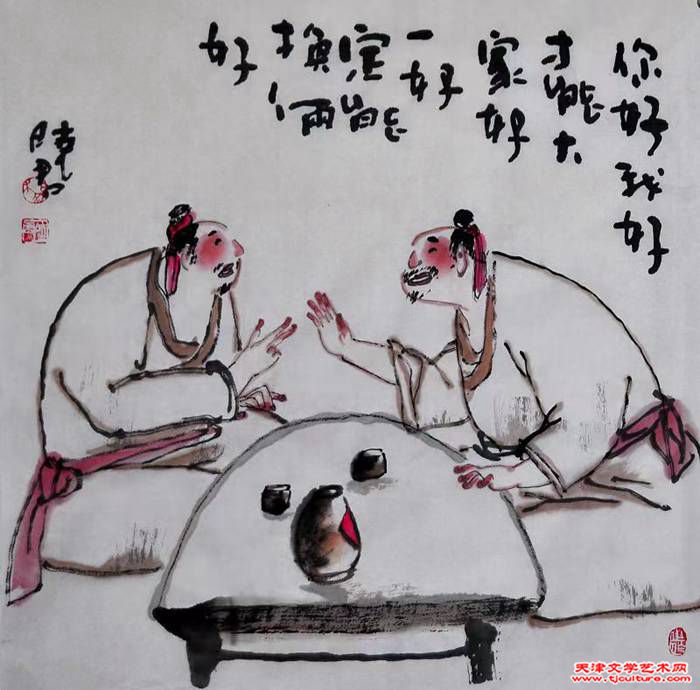 你好我好
才能大
家好
一好
定能
换俩
好
天津文学艺术网
www.tjculture.com